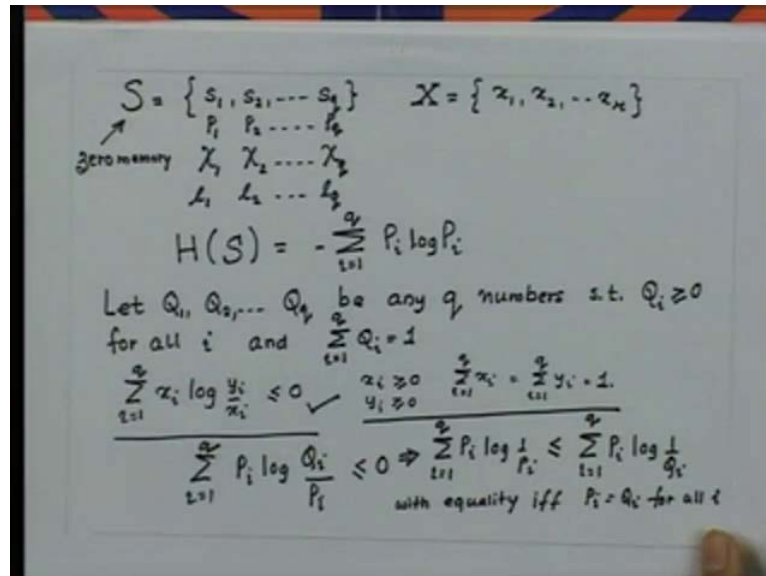 S = { s₁, s₂, --- s_q }    X = { x₁, x₂, -- x_r }
P₁ P₂ ---- P_q
zero memory X₁ X₂ ---- X_q
l₁ l₂ --- l_q
H(S) = - ∑_{i=1}^{q} P_i log P_i
Let Q₁, Q₂,--- Q_q be any q numbers s.t. Q_i ≥ 0
for all i and ∑_{i=1}^{q} Q_i = 1
∑_{i=1}^{q} x_i log y_i/x_i ≤ 0 ✓ x_i ≥ 0 y_i ≥ 0 ∑_{i=1}^{q} x_i = ∑_{i=1}^{q} y_i = 1.
∑_{i=1}^{q} P_i log Q_i/P_i ≤ 0 ⇒ ∑_{i=1}^{q} P_i log 1/P_i ≤ ∑_{i=1}^{q} P_i log 1/Q_i
with equality iff P_i = Q_i for all i